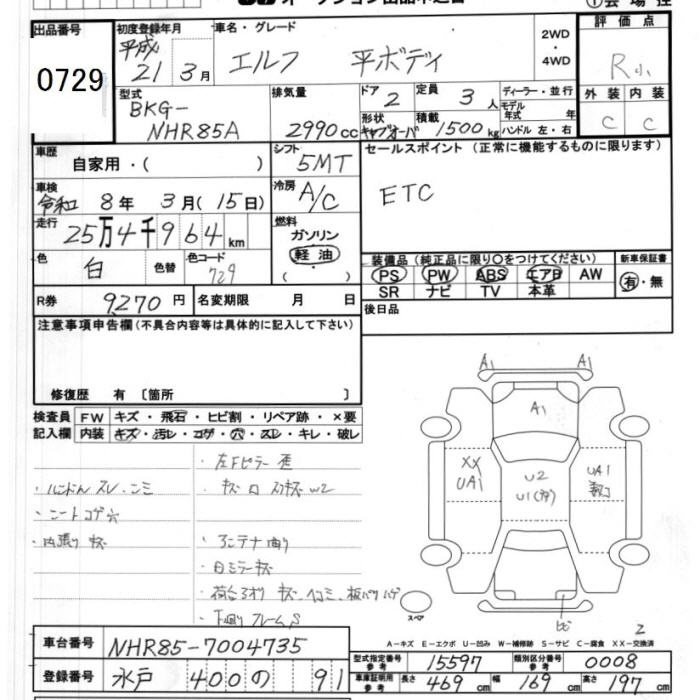 出品番号
0729
初度登録年月
平成
21 3月
車名・グレード
エルフ 平ボディ
2WD
・
4WD
評価点
R小
外装 内装
C C
型式
BKG-
NHR85A
排気量
2990cc
ドア
2
定員
3人
形状
キャブオーバ
積載
1500kg
ディーラー・並行
モデル
年式 年
ハンドル 左・右
車歴
自家用・( )
シフト
5MT
セールスポイント (正常に機能するものに限ります)
ETC
車検
令和 8年 3月(15日)
冷房
A/C
走行
25万4千964km
燃料
ガソリン
軽油
( )
色
白
色替
色コード
729
装備品(純正品に限り○をつけてください)
PS PW ABS エアB AW
SR ナビ TV 本革
新車保証書
有・無
R券
9270円
名変期限 月 日
後日品
注意事項申告欄(不具合内容等は具体的に記入して下さい)
修復歴 有〔箇所 〕
検査員
記入欄
FW キズ・飛石・ヒビ割・リペア跡・×要
内装 キズ・汚レ・コゲ・穴・スレ・キレ・破レ
・左Fピラー歪
・ハンドルスレ
・シートコゲ穴
・内張りキズ
・アンテナ曲り
・白ミラーキズ
・荷台3オリ キズ、ヘコミ、板バリハゲ
・下回りフレームS
A1 A1
A1
XX
UA1
U2
U1
UA1
スペア
A-キズ E-エクボ U-凹み W-補修跡 S-サビ C-腐食 XX-交換済
車台番号
NHR85-7004735
登録番号
水戸 400 の 91
型式指定番号
参考
15597
類別区分番号
参考
0008
車庫証明用
参考
長さ 469cm 幅 169cm 高さ 197cm